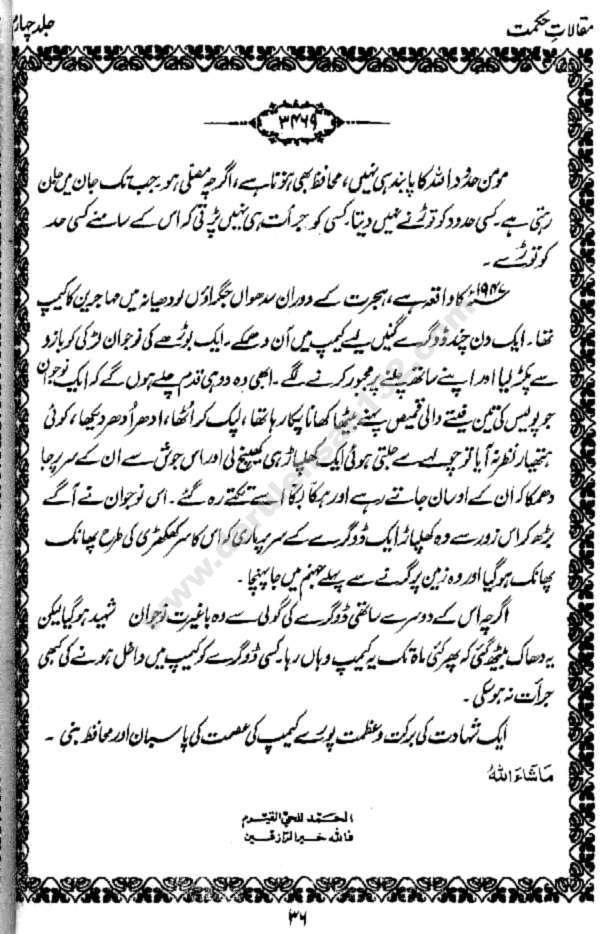 مقالاتِ حکمت
جلد چہارم
۳۴۶۹
مومن حدود اللہ کا پابند ہی نہیں، محافظ بھی ہوتا ہے، اگرچہ مصلی ہو۔ جب تک جان میں جان
رہتی ہے۔ کسی حدود کو توڑنے نہیں دیتا۔ کسی کو جرأت ہی نہیں پڑتی کہ اس کے سامنے کسی حد
کو توڑے۔
۱۹۴۷ء کا واقعہ ہے، ہجرت کے دوران سدھواں جگراؤں لودھیانہ میں مہاجرین کا کیمپ
تھا۔ ایک دن چند ڈوگرے گنیں لیے کیمپ میں آن دھمکے۔ ایک بوڑھے کی نوجوان لڑکی کو بازو
سے پکڑ لیا اور اپنے ساتھ چلنے پر مجبور کرنے لگے۔ ابھی وہ دو ہی قدم چلے ہوں گے کہ ایک نوجوان
جو پولیس کی تین فیتے والی قمیص پہنے بیٹھا کھانا پکا رہا تھا، لپک کر اٹھا، ادھر اُدھر دیکھا، کوئی
ہتھیار نظر نہ آیا تو چولہے سے جلتی ہوئی ایک کھلپاڑ ہی کھینچ لی اور اس جوش سے ان کے سر پر جا
دھمکا کہ ان کے اوسان جاتے رہے اور ہکا بکا اسے تکتے رہ گئے۔ اس نوجوان نے آگے
بڑھ کر اس زور سے وہ کھلپاڑ ایک ڈوگرے کے سر پر ماری کہ اس کا سر ککھڑی کی طرح پھانک
پھانک ہو گیا اور وہ زمین پر گرنے سے پہلے جہنم میں جا پہنچا۔
اگرچہ اس کے دوسرے ساتھی ڈوگرے کی گولی سے وہ باغیرت نوجوان شہید ہو گیا لیکن
یہ دھاک بیٹھ گئی کہ پھر کئی ماہ تک یہ کیمپ وہاں رہا۔ کسی ڈوگرے کو کیمپ میں داخل ہونے کی کبھی
جرأت نہ ہو سکی۔
ایک شہادت کی برکت و عظمت پورے کیمپ کی عصمت کی پاسبان اور محافظ بنی۔
مَاشَاءَ اللہُ
الحمد للحی القیوم
فاللہ خیر الرازقین
۳۶
www.darulehsan132.com